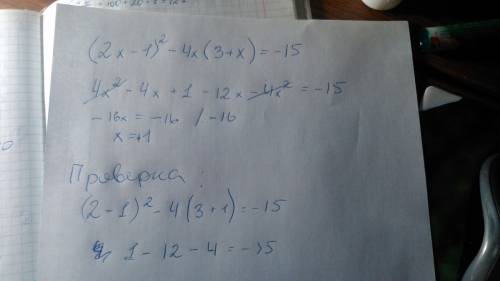 (2x-1)² - 4x(3+x) = -15
4x² - 4x + 1 - 12x - 4x² = -15
-16x = -16 / -16
x = +1
Проверка:
(2-1)² - 4(3+1) = -15
1 - 12 - 4 = -15